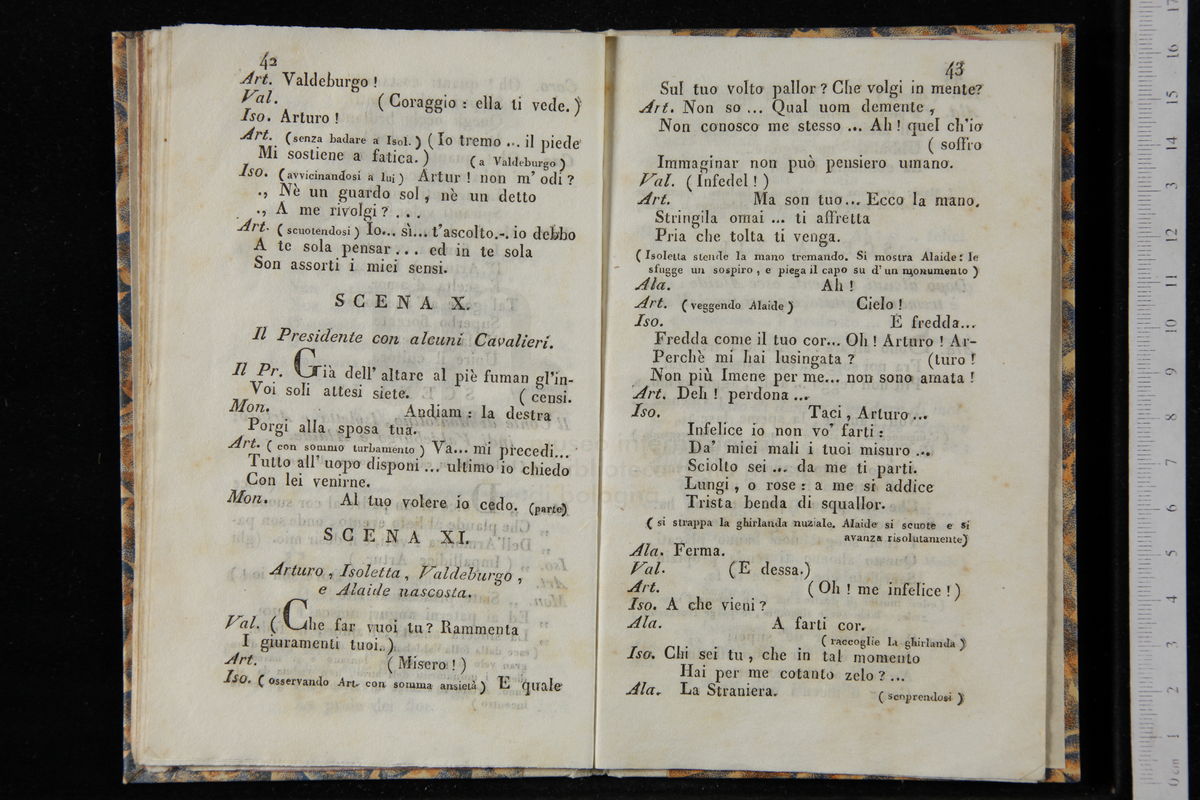 42
Art. Valdeburgo !
Val. ( Coraggio : ella ti vede. )
Iso. Arturo !
Art. (senza badare a Isol.) ( Io tremo ... il piede
Mi sostiene a fatica. ) (a Valdeburgo)
Iso. (avvicinandosi a lui) Artur ! non m' odi ?
., Nè un guardo sol, nè un detto
., A me rivolgi ? . . .
Art. ( scuotendosi ) Io... sì... t'ascolto.-. io debbo
A te sola pensar ... ed in te sola
Son assorti i miei sensi.
SCENA X.
Il Presidente con alcuni Cavalieri.
Il Pr. Già dell' altare al piè fuman gl'in-
Voi soli attesi siete. ( censi.
Mon. Andiam : la destra
Porgi alla sposa tua.
Art. ( con sommo turbamento ) Va... mi precedi...
Tutto all' uopo disponi ... ultimo io chiedo
Con lei venirne.
Mon. Al tuo volere io cedo. (parte)
SCENA XI.
Arturo , Isoletta , Valdeburgo ,
e Alaide nascosta.
Val. ( Che far vuoi tu? Rammenta
I giuramenti tuoi..)
Art. ( Misero ! )
Iso. ( osservando Art. con somma ansietà ) E quale
43
Sul tuo volto pallor ? Che volgi in mente?
Art. Non so ... Qual uom demente ,
Non conosco me stesso ... Ah ! quel ch'io
( soffro
Immaginar non può pensiero umano.
Val. ( Infedel ! )
Art. Ma son tuo... Ecco la mano.
Stringila omai ... ti affretta
Pria che tolta ti venga.
( Isoletta stende la mano tremando. Si mostra Alaide : le
sfugge un sospiro , e piega il capo su d' un monumento )
Ala. Ah !
Art. ( veggendo Alaide ) Cielo !
Iso. E fredda...
Fredda come il tuo cor... Oh ! Arturo ! Ar-
Perchè mi hai lusingata ? (turo !
Non più Imene per me... non sono amata !
Art. Deh ! perdona ...
Iso. Taci, Arturo ...
Infelice io non vo' farti :
Da' miei mali i tuoi misuro ...
Sciolto sei ... da me ti parti.
Lungi , o rose : a me si addice
Trista benda di squallor.
( si strappa la ghirlanda nuziale. Alaide si scuote e si
avanza risolutamente)
Ala. Ferma.
Val. (E dessa.)
Art. ( Oh ! me infelice ! )
Iso. A che vieni ?
Ala. A farti cor.
( raccoglie la ghirlanda )
Iso. Chi sei tu , che in tal momento
Hai per me cotanto zelo ? ...
Ala. La Straniera. ( scoprendosi )
0 cm 1 2 3 4 5 6 7 8 9 10 11 12 13 14 15 16 17